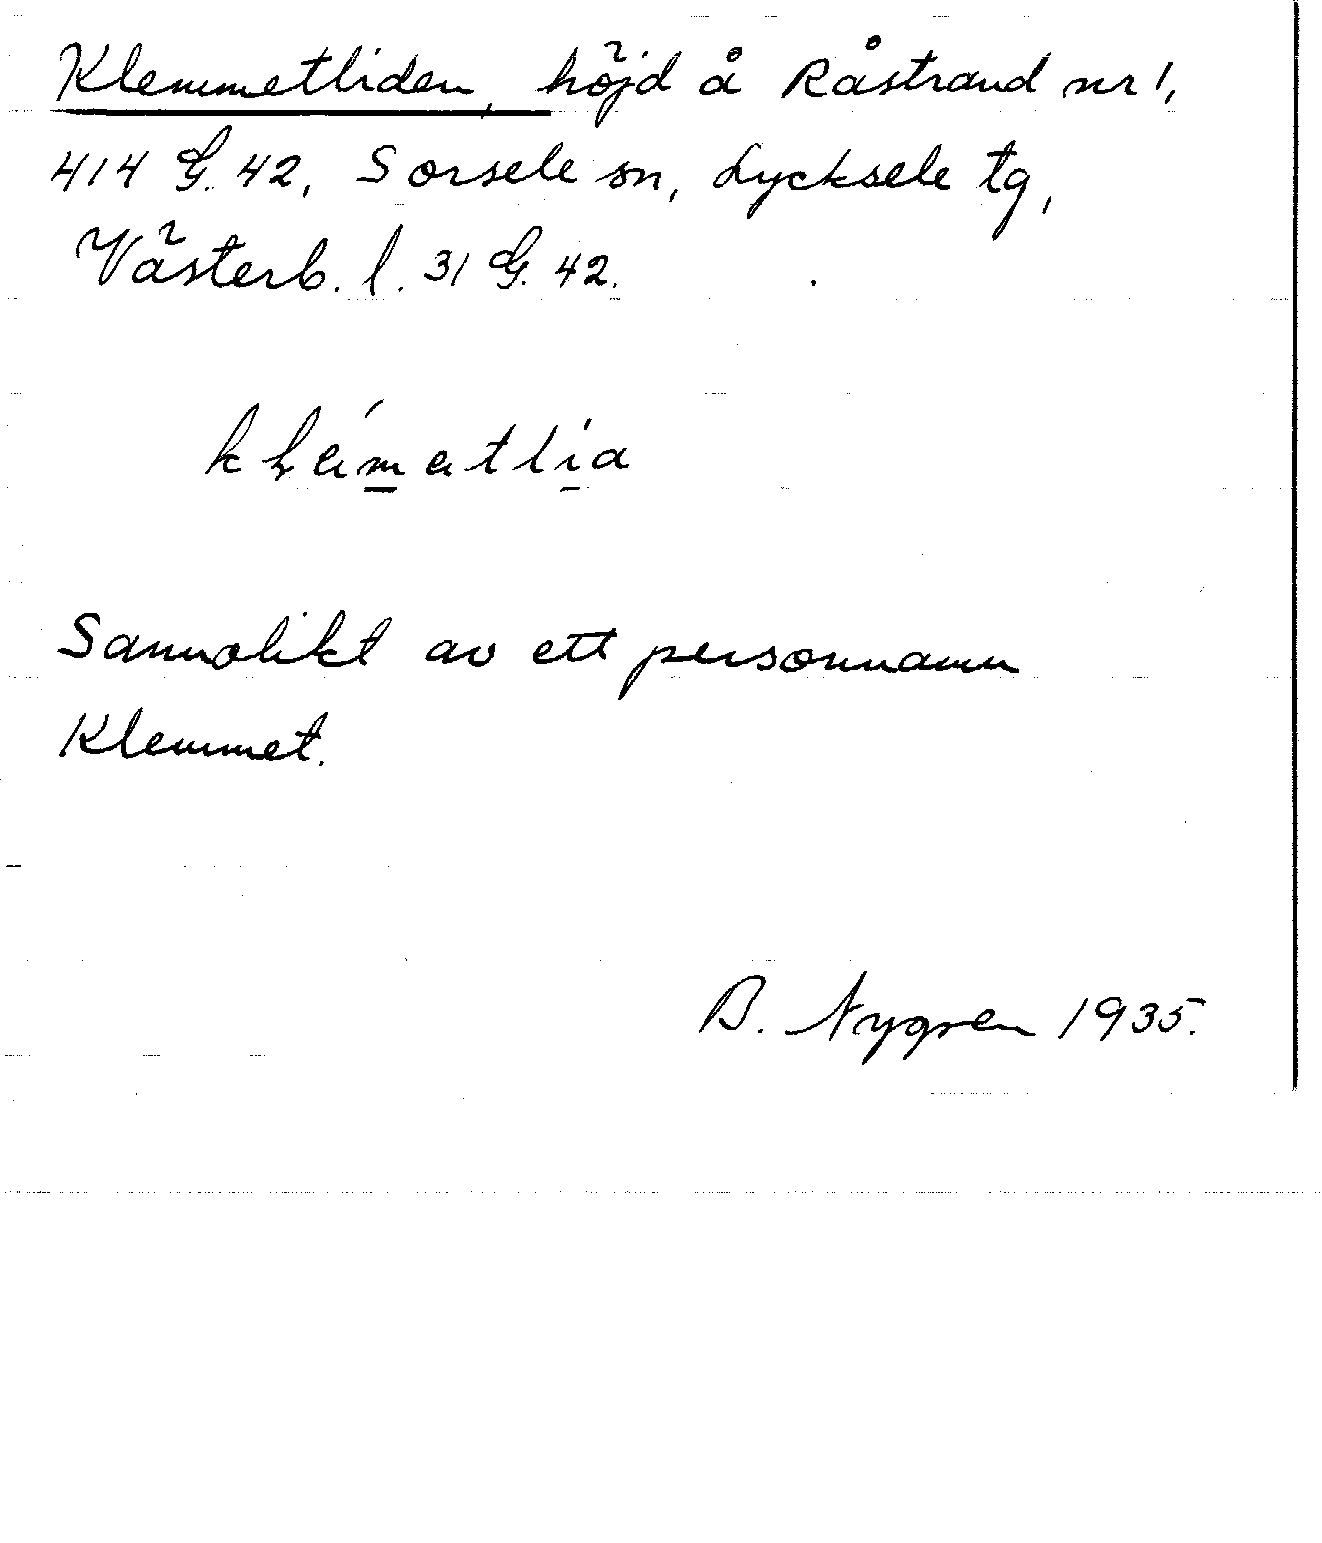 Klemmetliden, höjd å Råstrand nr 1,
414 G. 42, Sorsele sn, Lycksele tg,
Västerb. l. 31 G. 42.
Sannolikt av ett personnamn
Klemmet.
B. Nygren 1935.